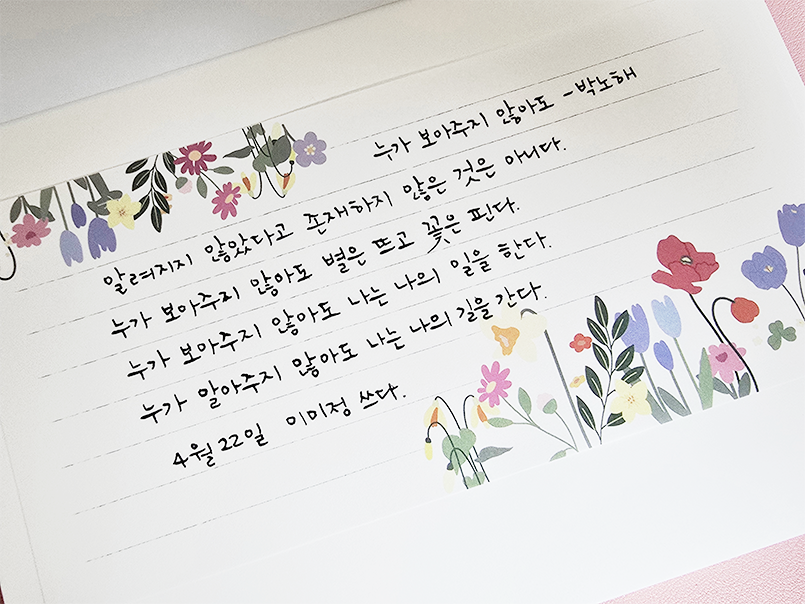 누가 보아주지 않아도 -박노해
알려지지 않았다고 존재하지 않은 것은 아니다.
누가 보아주지 않아도 별은 뜨고 꽃은 핀다.
누가 보아주지 않아도 나는 나의 일을 한다.
누가 알아주지 않아도 나는 나의 길을 간다.
4월 22일 이미정 쓰다.